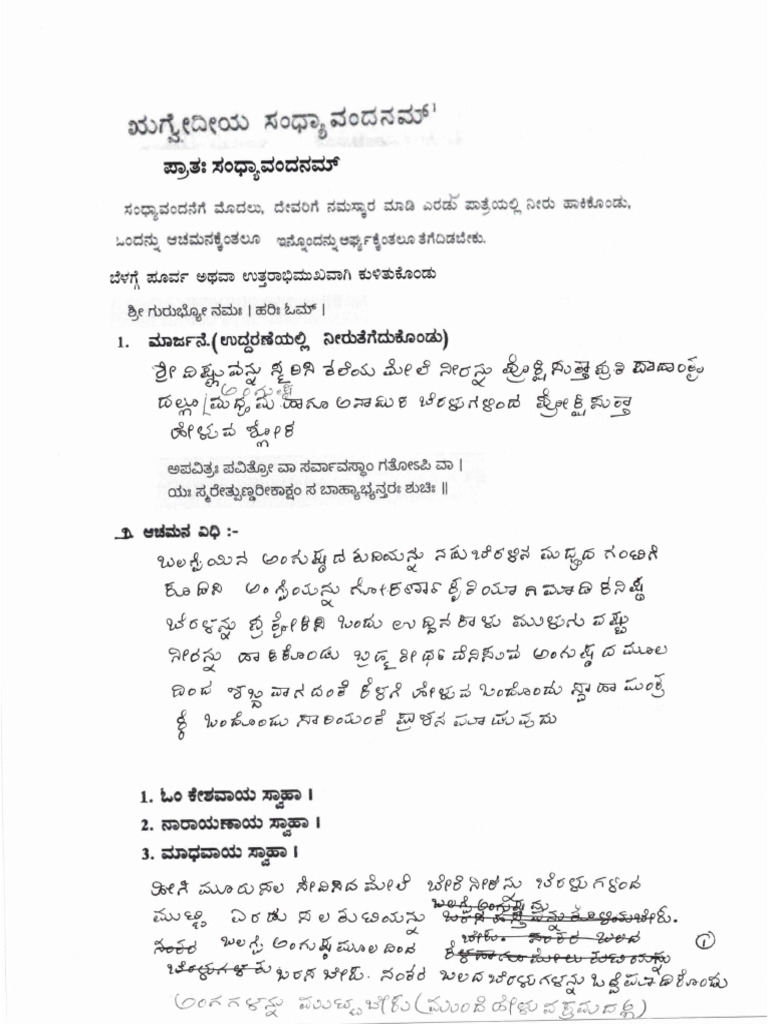 ಋಗ್ವೇದೀಯ ಸಂಧ್ಯಾವಂದನಮ್¹
ಪ್ರಾತಃ ಸಂಧ್ಯಾವಂದನಮ್
ಸಂಧ್ಯಾವಂದನೆಗೆ ಮೊದಲು, ದೇವರಿಗೆ ನಮಸ್ಕಾರ ಮಾಡಿ ಎರಡು ಪಾತ್ರೆಯಲ್ಲಿ ನೀರು ಹಾಕಿಕೊಂಡು,
ಒಂದನ್ನು ಆಚಮನಕ್ಕೆಂತಲೂ ಇನ್ನೊಂದನ್ನು ಆರ್ಘ್ಯಕ್ಕೆಂತಲೂ ತೆಗೆದಿಡಬೇಕು.
ಬೆಳಗ್ಗೆ ಪೂರ್ವ ಅಥವಾ ಉತ್ತರಾಭಿಮುಖವಾಗಿ ಕುಳಿತುಕೊಂಡು
ಶ್ರೀ ಗುರುಭ್ಯೋ ನಮಃ | ಹರಿಃ ಓಮ್ |
1. ಮಾರ್ಜನೆ.(ಉದ್ದರಣೆಯಲ್ಲಿ ನೀರುತೆಗೆದುಕೊಂಡು)
ಶ್ರೀ ವಿಷ್ಣುವನ್ನು ಸ್ಮರಿಸಿ ತಲೆಯ ಮೇಲೆ ನೀರನ್ನು ಪ್ರೋಕ್ಷಿಸುತ್ತಾ ಪ್ರತಿ ಪಾದಾಂತ್ಯ
ಅಂಗುಷ್ಠ
ದಲ್ಲೂ ಮಧ್ಯಮ ಹಾಗೂ ಅನಾಮಿಕ ಬೆರಳುಗಳಿಂದ ಪ್ರೋಕ್ಷಿಸುತ್ತಾ
ಹೇಳುವ ಶ್ಲೋಕ
ಅಪವಿತ್ರಃ ಪವಿತ್ರೋ ವಾ ಸರ್ವಾವಸ್ಥಾಂ ಗತೋಽಪಿ ವಾ |
ಯಃ ಸ್ಮರೇತ್ಪುಣ್ಡರೀಕಾಕ್ಷಂ ಸ ಬಾಹ್ಯಾಭ್ಯನ್ತರಃ ಶುಚಿಃ ||
2. ಆಚಮನ ವಿಧಿ :-
ಬಲಗೈಯಿನ ಅಂಗುಷ್ಠದ ತುದಿಯನ್ನು ನಡುಬೆರಳಿನ ಮಧ್ಯದ ಗಂಟಿಗೆ
ಕೂಡಿಸಿ ಅಂಗೈಯನ್ನು ಗೋಕರ್ಣಾಕೃತಿಯಾಗಿ ಮಾಡಿ ಕನಿಷ್ಠ
ಬೆರಳನ್ನು ಒಂದು ಉದ್ದಿನ ಕಾಳು ಮುಳುಗುವಷ್ಟು
ನೀರನ್ನು ಹಾಕಿಕೊಂಡು ಬ್ರಹ್ಮತೀರ್ಥವೆನಿಸುವ ಅಂಗುಷ್ಠದ ಮೂಲ
ದಿಂದ ಶಬ್ದವಾಗದಂತೆ ಕೆಳಗೆ ಹೇಳುವ ಒಂದೊಂದು ಸ್ವಾಹಾ ಮಂತ್ರ
ಕ್ಕೆ ಒಂದೊಂದು ಸಾರಿಯಂತೆ ಪ್ರಾಶನ ಮಾಡುವುದು
1. ಓಂ ಕೇಶವಾಯ ಸ್ವಾಹಾ |
2. ನಾರಾಯಣಾಯ ಸ್ವಾಹಾ |
3. ಮಾಧವಾಯ ಸ್ವಾಹಾ |
ಹೀಗೆ ಮೂರುಸಲ ಸೇವಿಸಿದ ಮೇಲೆ ಬೇರೆ ನೀರನ್ನು ಬೆರಳುಗಳಿಂದ
ಬಲಗೈ ಅಂಗುಷ್ಠ
ಮುಟ್ಟಿ ಎರಡು ಸಲ ತುಟಿಯನ್ನು
ನಂತರ ಬಲಗೈ ಅಂಗುಷ್ಠ ಮೂಲದಿಂದ
ಬೆರಳುಗಳ ಒರಸಬೇಕು. ನಂತರ ಬಲದ ಬೆರಳುಗಳನ್ನು ಒದ್ದೆಮಾಡಿಕೊಂಡು
1
ಅಂಗಗಳನ್ನು ಮುಟ್ಟಬೇಕು (ಮುಂದೆ ಹೇಳುವ ಕ್ರಮದಲ್ಲಿ)